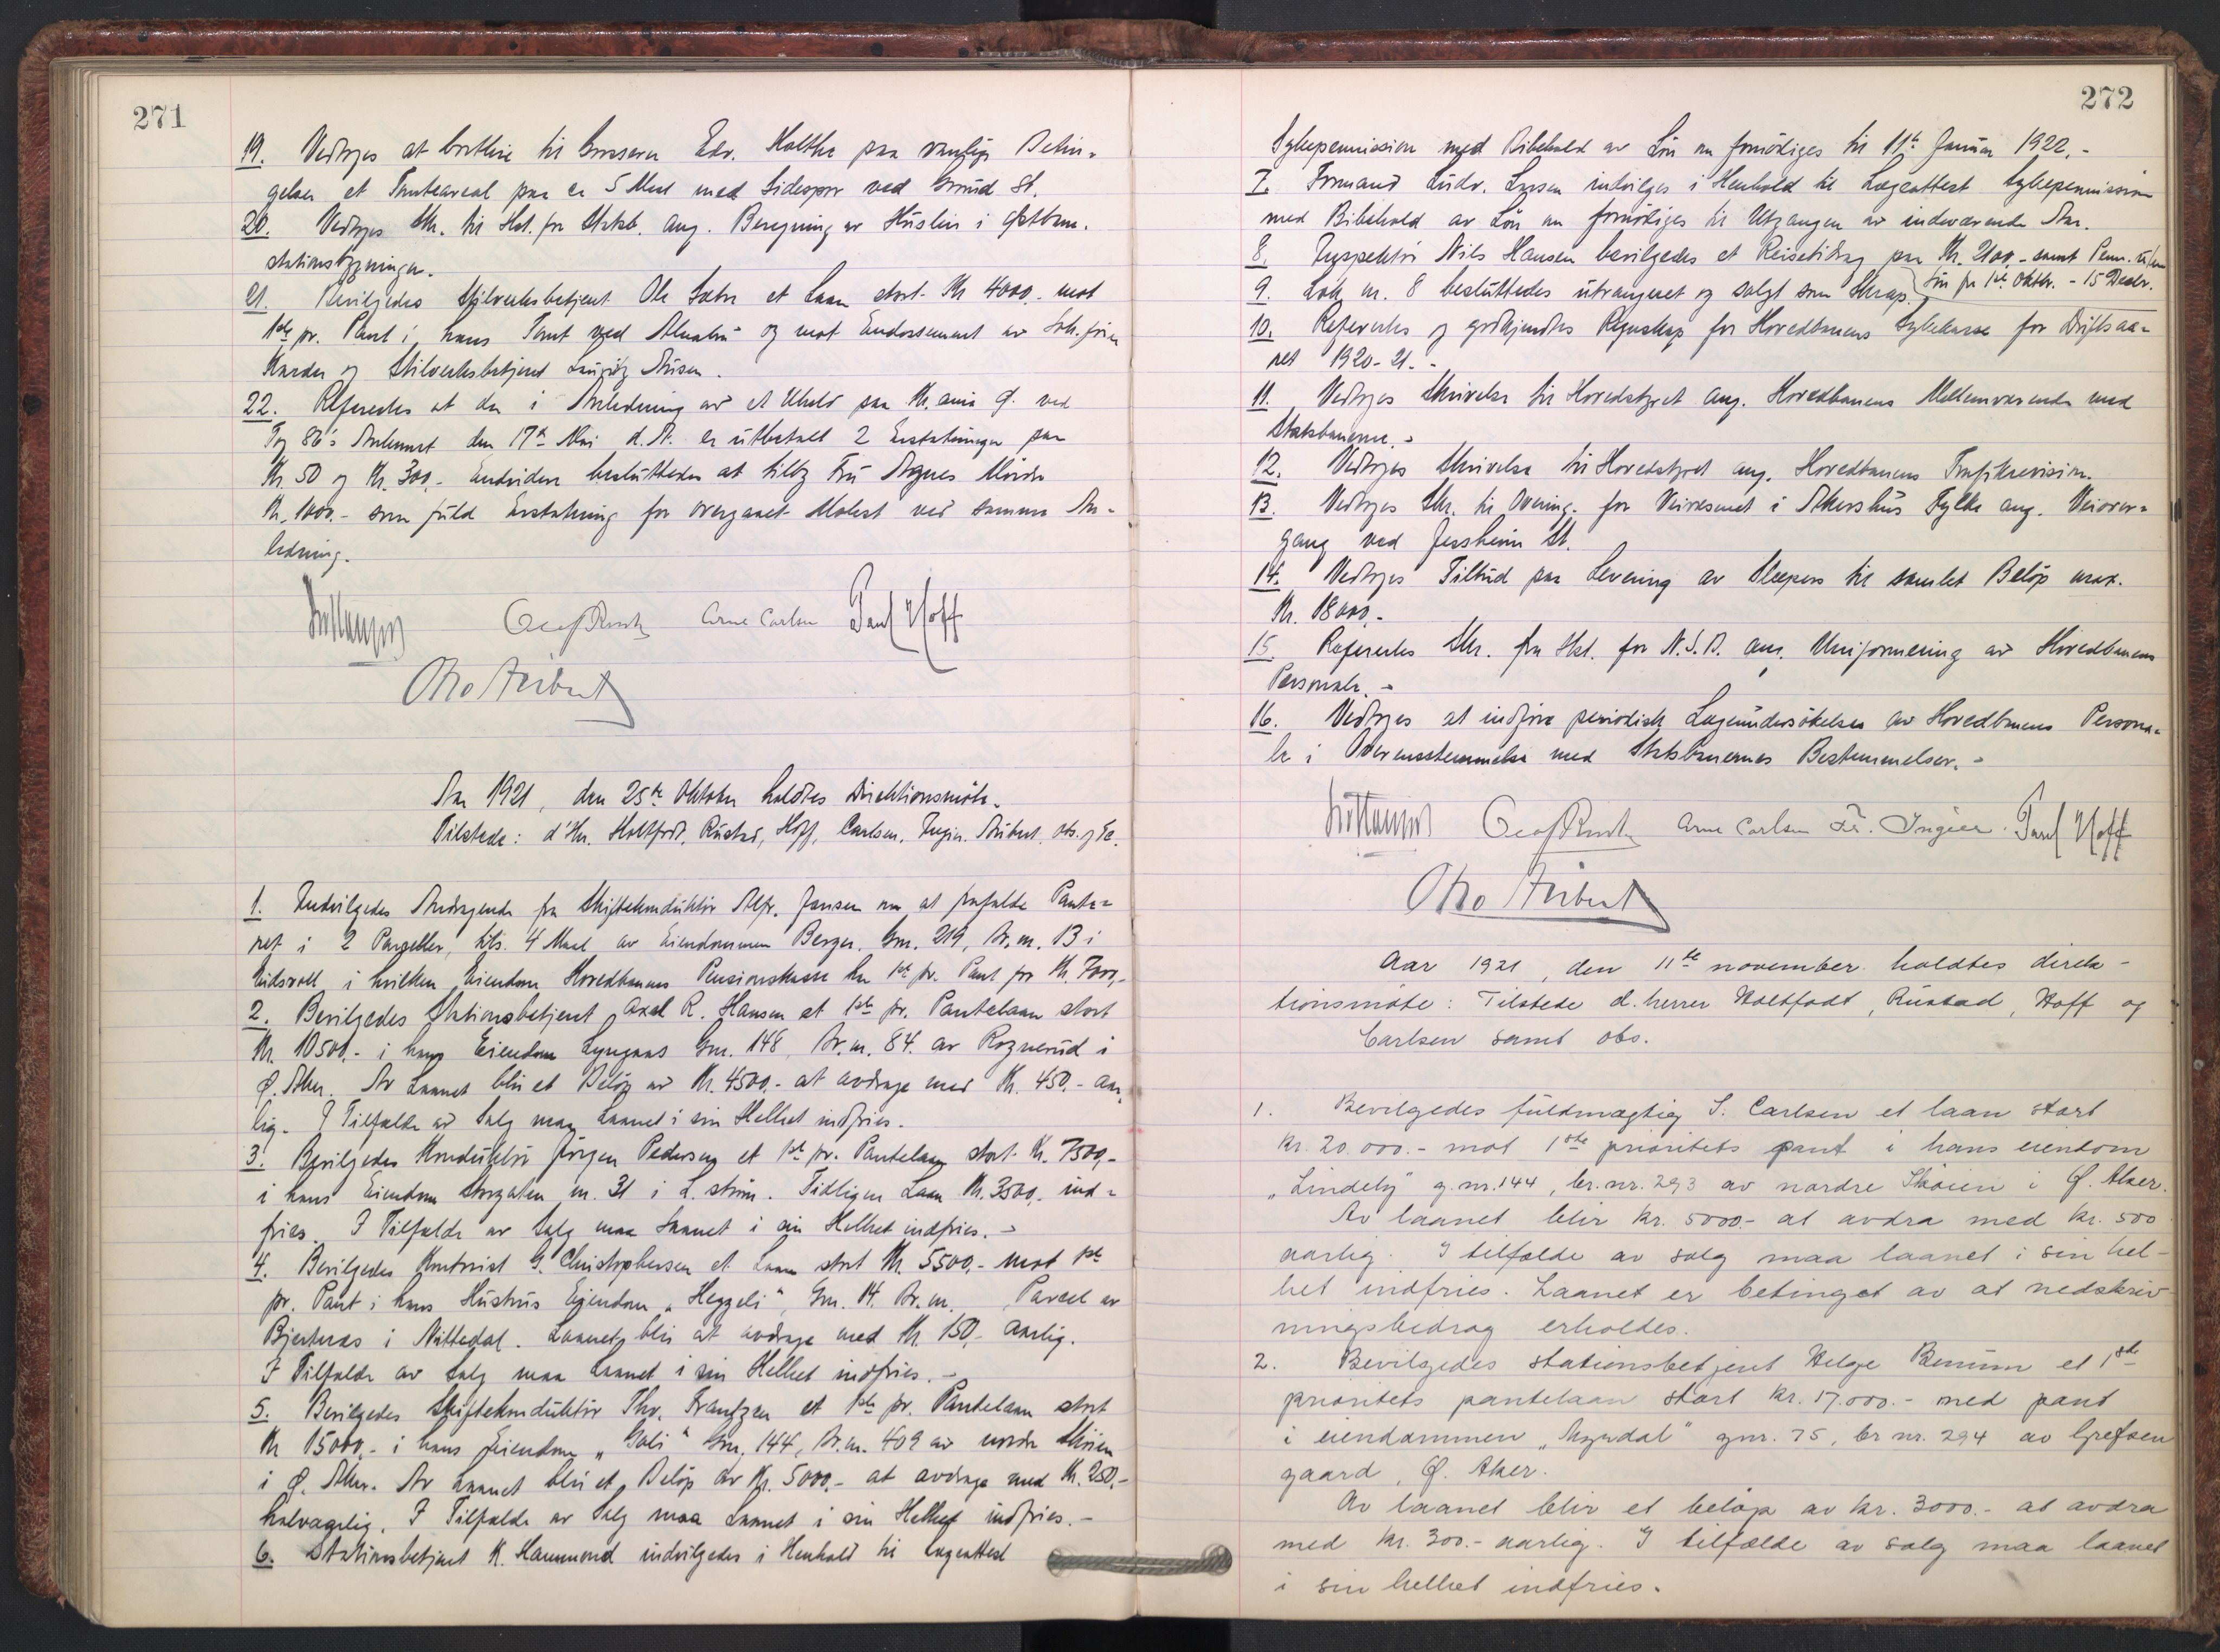 271
19. Vedtoges at bortleie til Grosserer Edv. Holthe paa vanlige Betin-
gelser et Tomteareal paa ca 5 Maal med Sidespor ved Grorud St.
20. Vedtoges Skr. til Hst. for Statsb. ang. Beregning av Husleie i Østban.
stationsbygningen.
21. Bevilgedes Stilverksbetjent Ole Sæter et Laan stort Kr 4000.- mot
1ste pr. Pant i hans Tomt ved Alnabru og mot Endossement av Lok.fører
Karder og Stilverksbetjent Ludvig Olsen.
22. Refereredes at der i Anledning av et Uheld paa Kr.ania Ø. ved
Tog 86's Ankomst den 17de Mai d.A. er utbetalt 2 Erstatninger paa
Kr. 50 og Kr. 300.- Endvidere besluttedes at tilby Fru Agnes
Kr. 1000.- som fuld Erstatning for overgaaet Molest ved samme An-
ledning.
Arne Carlsen Paul Hoff
Otto Aubert
Aar 1921, den 25de Oktober holdtes Direktionsmøte.
Tilstede: d'Hr. Holtfodt, Rustad, Hoff, Carlsen, Ingier, Aubert, obs. og Sc.
1. Indvilgedes Andragende fra Skiftekonduktør Alfr. Jansen om at frafalde Pante-
ret i 2 Parceller, tils. 4 Maal av Eiendommen Berger, Gnr. 219, Br.nr. 13 i
Eidsvoll i hvilken Eiendom Hovedbanens Pensionskasse har 1ste pr. Pant for Kr. 7000,-
2. Bevilgedes Stationsbetjent Axel R. Hansen et 1ste pr. Pantelaan stort
Kr. 10500.- i hans Eiendom Lyngaas Gnr. 148, Br.nr. 84 av Rognerud i
Ø. Aker. Av Laanet blir et Beløp av Kr. 4500.- at avdrage med Kr. 450.- aar-
lig. I Tilfælde av Salg maa Laanet i sin Helhet indfries.
3. Bevilgedes Konduktør Jörgen Pedersen et 1ste pr. Pantelaan stort Kr. 7500,-
i hans Eiendom Storgaten nr. 31 i L.strøm. Tidligere Laan Kr. 3500,- ind-
fries. I Tilfælde av Salg maa Laanet i sin Helhet indfries.-
4. Bevilgedes Kontorist G. Christophersen et Laan stort Kr. 5500,- mot 1ste
pr. Pant i hans Hustrus Eiendom „Heggeli", Gnr. 14. Br.nr. Parcel av
Bjerteræs i Nittedal. Laanet blir at avdrage med Kr. 150,- aarlig.
I Tilfælde av Salg maa Laanet i sin Helhet indfries.-
5. Bevilgedes Skiftekonduktør Thv. Frantzen et 1ste pr. Pantelaan stort
Kr 15000.- i hans Eiendom „Soli" Gnr. 144, Br.nr. 409 av nordre Skøien
i Ø. Aker. Av Laanet blir et Beløp av Kr. 5000.- at avdrage med Kr. 250,-
halvaarlig. I Tilfælde av Salg maa Laanet i sin Helhet indfries.-
6. Stationsbetjent K. Hammond indvilgedes i Henhold til Lægeattest
272
Sykepermission med Bibehold av Løn om fornødiges til 11te Januar 1922.-
7. Formand Ludv. Larsen indvilges i Henhold til Lægeattest Sykepermission
med Bibehold av Løn om fornødiges til Utgangen av indeværende Aar.
8. Inspektør Nils Hansen bevilgedes et Reisebidrag paa Kr. 2100,- samt Perm. uten
Løn fra 1ste Oktbr. - 15 Decbr.
9. Lok. nr. 8 besluttedes utrangeret og solgt som Skrap.
10. Refereredes og godkjendtes Regnskap for Hovedbanens Sykekasse for Driftsaa-
ret 1920-21.-
11. Vedtoges Skrivelse til Hovedstyret ang. Hovedbanens Mellemværende med
Statsbanerne.-
12. Vedtoges Skrivelse til Hovedstyret ang. Hovedbanens Trafikrevision.
13. Vedtoges Skr. til Overing. for Veivæsenet i Akershus Fylke ang. Veiover-
gang ved Jessheim St.
14. Vedtoges Tilbud paa Levering av Sleepers til samlet Beløp max.
Kr. 18000,-
15. Refereredes Skr. fra Hst. for N.S.B. ang. Uniformering av Hovedbanens
Personale.-
16. Vedtoges at indføre periodisk Lægeundersøkelse av Hovedbanens Persona-
le i Overensstemmelse med Statsbanernes Bestemmelser.-
Arne Carlsen Fr. Ingier. Paul Hoff
Otto Aubert
Aar 1921, den 11te november holdtes direk-
tionsmøte: Tilstede d. herrer Holtfodt, Rustad, Hoff og
Carlsen samt obs.
1. Bevilgedes fuldmægtig S. Carlsen et laan stort
kr. 20.000.- mot 1ste prioritets pant i hans eiendom
„Lindely" g.nr. 144, br.nr. 293 av nordre Skøien i Ø. Aker.
Av laanet blir kr. 5000.- at avdra med kr. 500
aarlig. I tilfælde av salg maa laanet i sin hel-
het indfries. Laanet er betinget av at nedskriv-
ningsbedrag erholdes.
2. Bevilgedes stationsbetjent Helge Benum et 1ste
prioritets pantelaan stort kr. 17.000.- med pant
i eiendommen „Myrdal" gnr. 75, br nr. 294 av Grefsen
gaard, Ø. Aker.
Av laanet blir et beløp av kr. 3000.- at avdra
med kr. 300.- aarlig. I tilfælde av salg maa laanet
i sin helhet indfries.